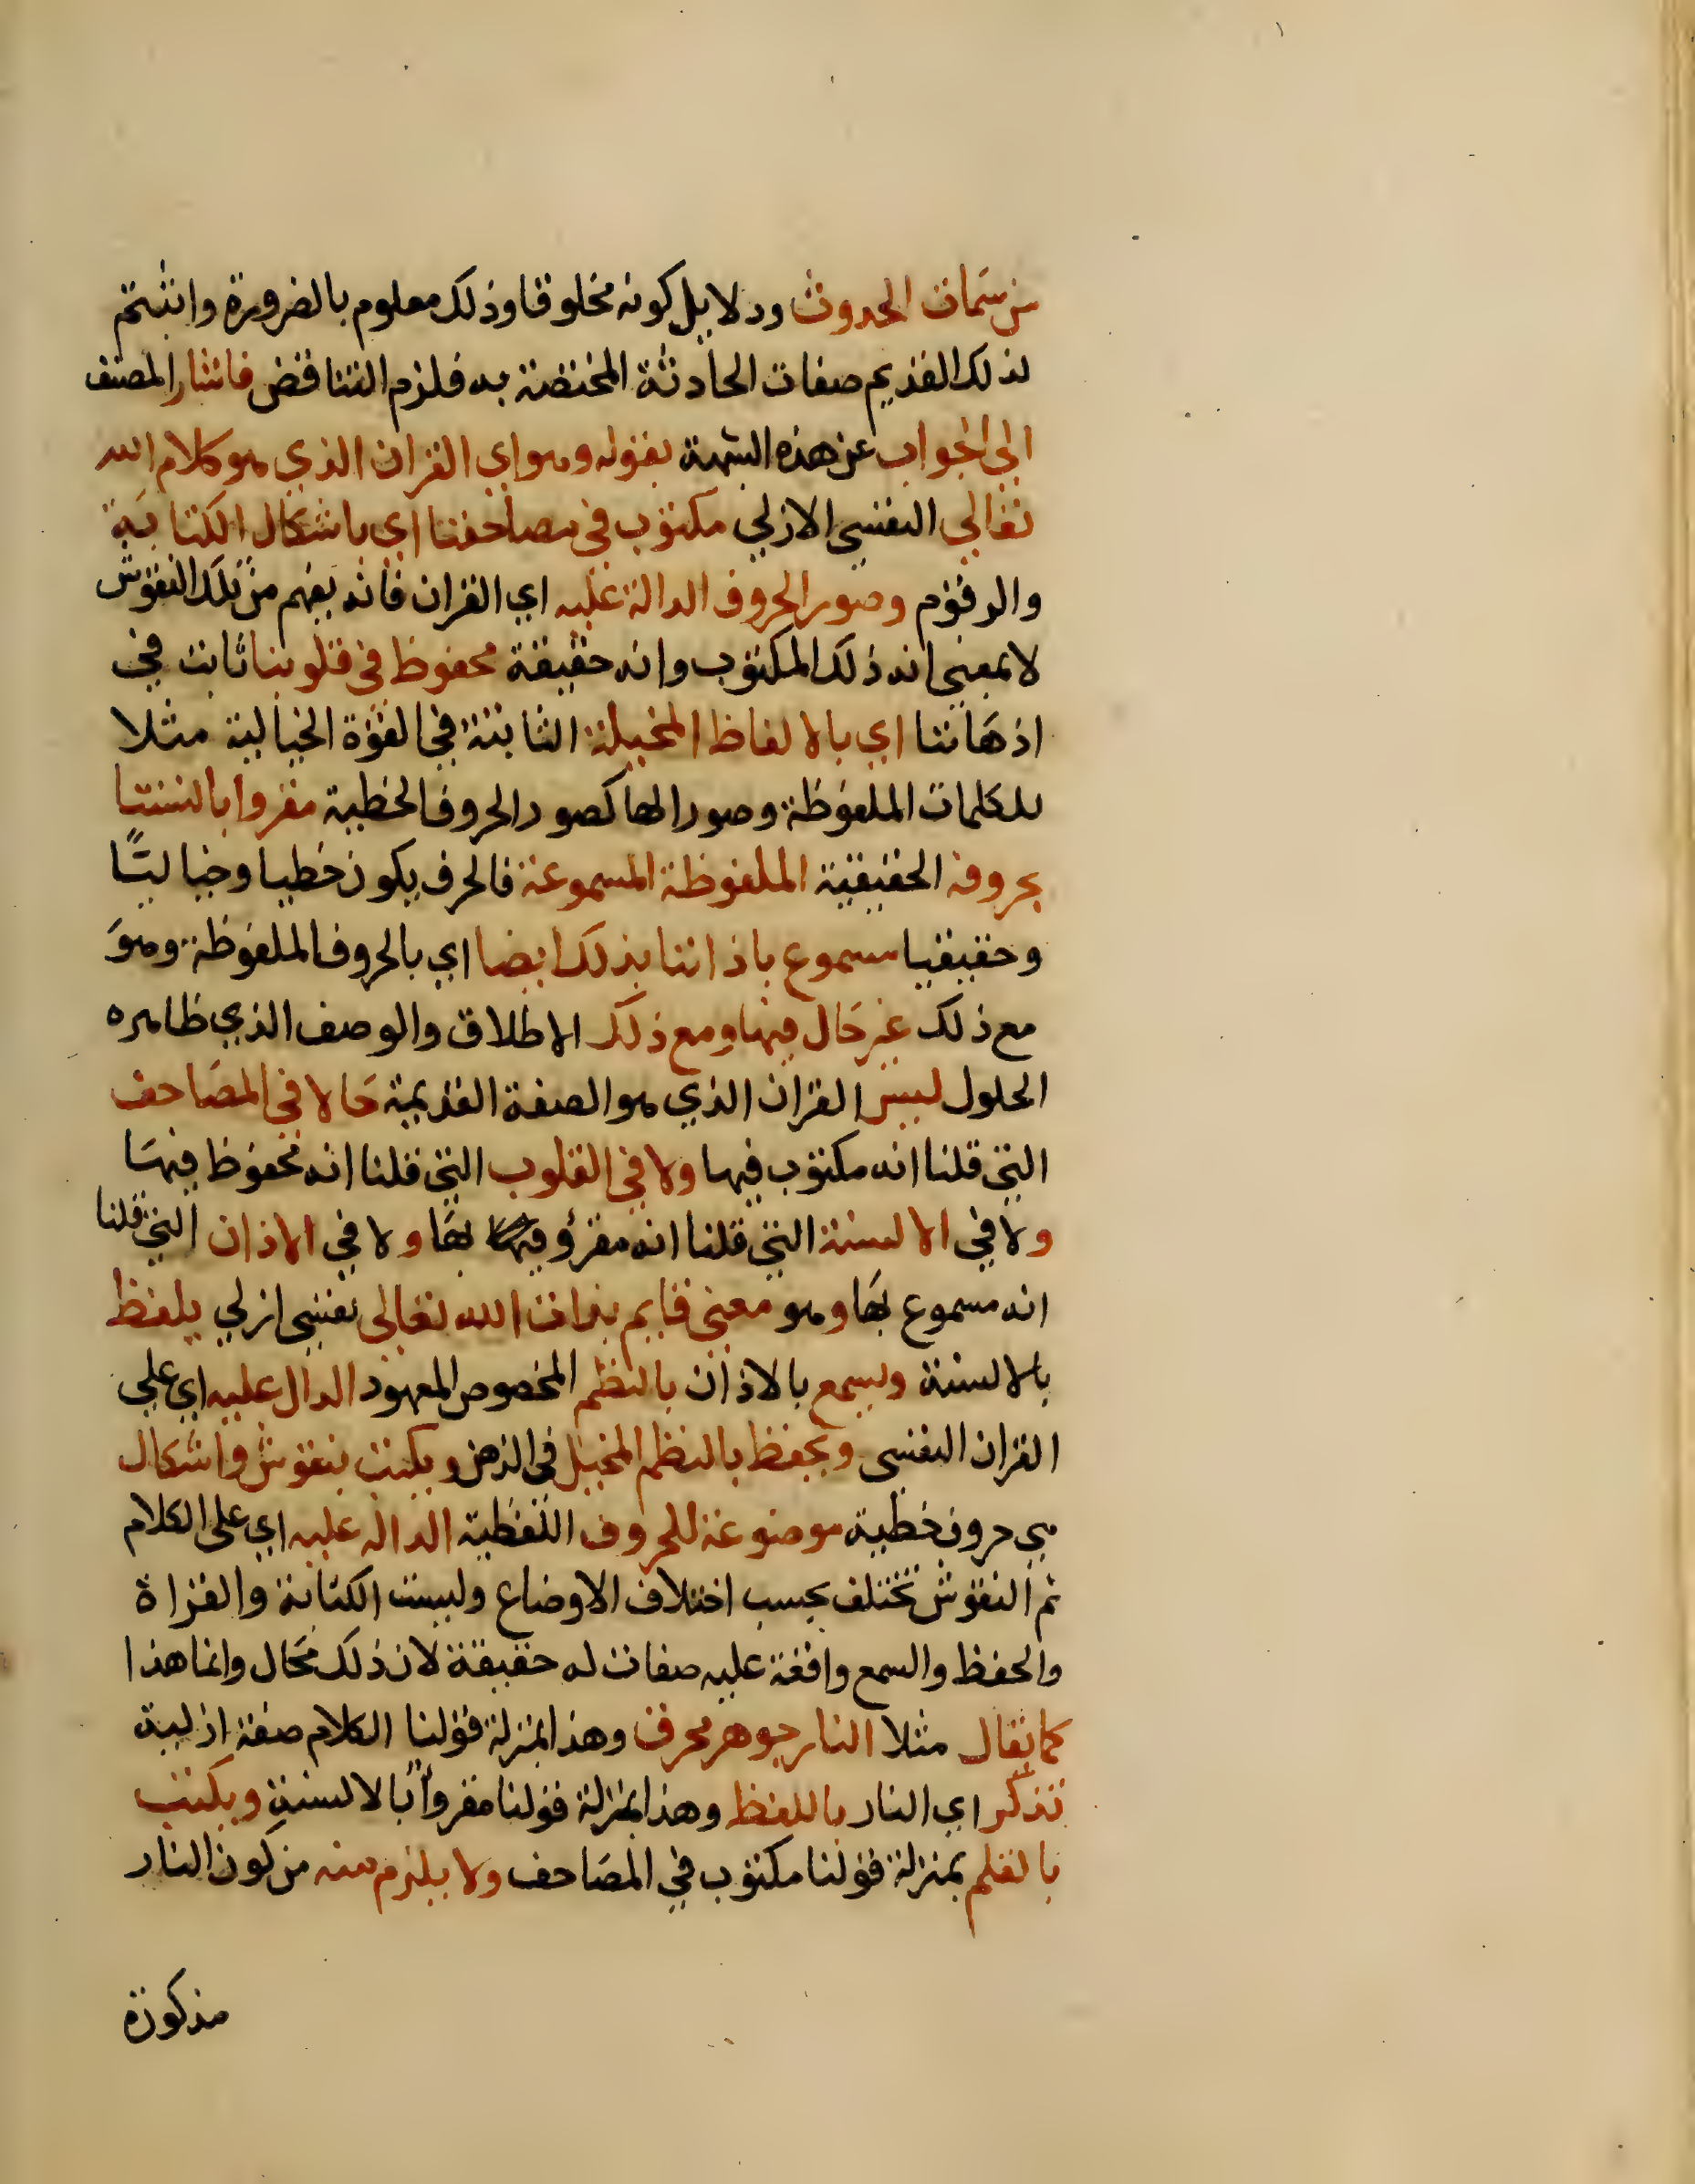 من سَمات الحدوث ودلايل كونه مخلوقا وذلك معلوم بالضرورة واثبتم
لذلك القديم صفات الحادثة المختصة به فلزم التناقض فاشار المصنف
الي الجواب عن هذه الشبهة بقوله وهو اي القران الذي هو كلام الله
تعالي النفسي الازلي مكتوب في مصاحفنا اي باشكال الكتابَة
والرقوم وصور الحروف الدالة عليه اي القران فانه يفهم من تلك النقوش
لا بمعني انه ذلك المكتوب وانه حقيقة محفوظ في قلوبنا ثابت في
اذهَاننا اي بالالفاظ المخيلة الثابتة في القوة الخيالية مثلا
للكلمات الملفوظة وصورا لها كصور الحروف الخطية مقروا بالسنتنا
بحروفه الحقيقية الملفوظة المسموعة فالحرف يكون خطيا وخياليًّا
وحقيقيا مسموع باذاننا بذلك ايضا اي بالحروف الملفوظة وهوَ
مع ذلك غير حَال فيها ومع ذلك الاطلاق والوصف الذي ظاهره
الحلول ليس القران الذي هو الصفة القديمة حَالا في المصَاحف
التي قلنا انه مكتوب فيها ولا في القلوب التي قلنا انه محفوظ فيهَا
ولا في الالسنة التي قلنا انه مقرؤ فيها بهَا ولا في الاذان التي قلنا
انه مسموع بهَا وهو معني قايم بذات الله تعالي نفسي ازلي يلفظ
بالالسنة ويسمع بالاذان بالنظم المخصوص المعهود الدال عليه اي علي
القران النفسي ويحفظ بالنظم المخيل في الذهن ويكتب بنقوش واشكال
هي حروف خطية موضوعة للحروف اللفظية الدالة عليه اي على الكلام
ثم النقوش تختلف بحسب اختلاف الاوضاع وليست الكتابة والقراة
والحفظ والسمع واقعة عليه صفات له حقيقة لان ذلك مُحَال وانما هذا
كما يقال مثلا النار جوهر محرق وهذا بمنزلة قولنا الكلام صفة ازلية
تذكر اي النار باللفظ وهذا بمنزلة قولنا مقروأ بالالسنةِ ويكتب
بالقلم بمنزلة قولنا مكتوب في المصَاحف ولا يلزم منه من كون النار
مذكورة